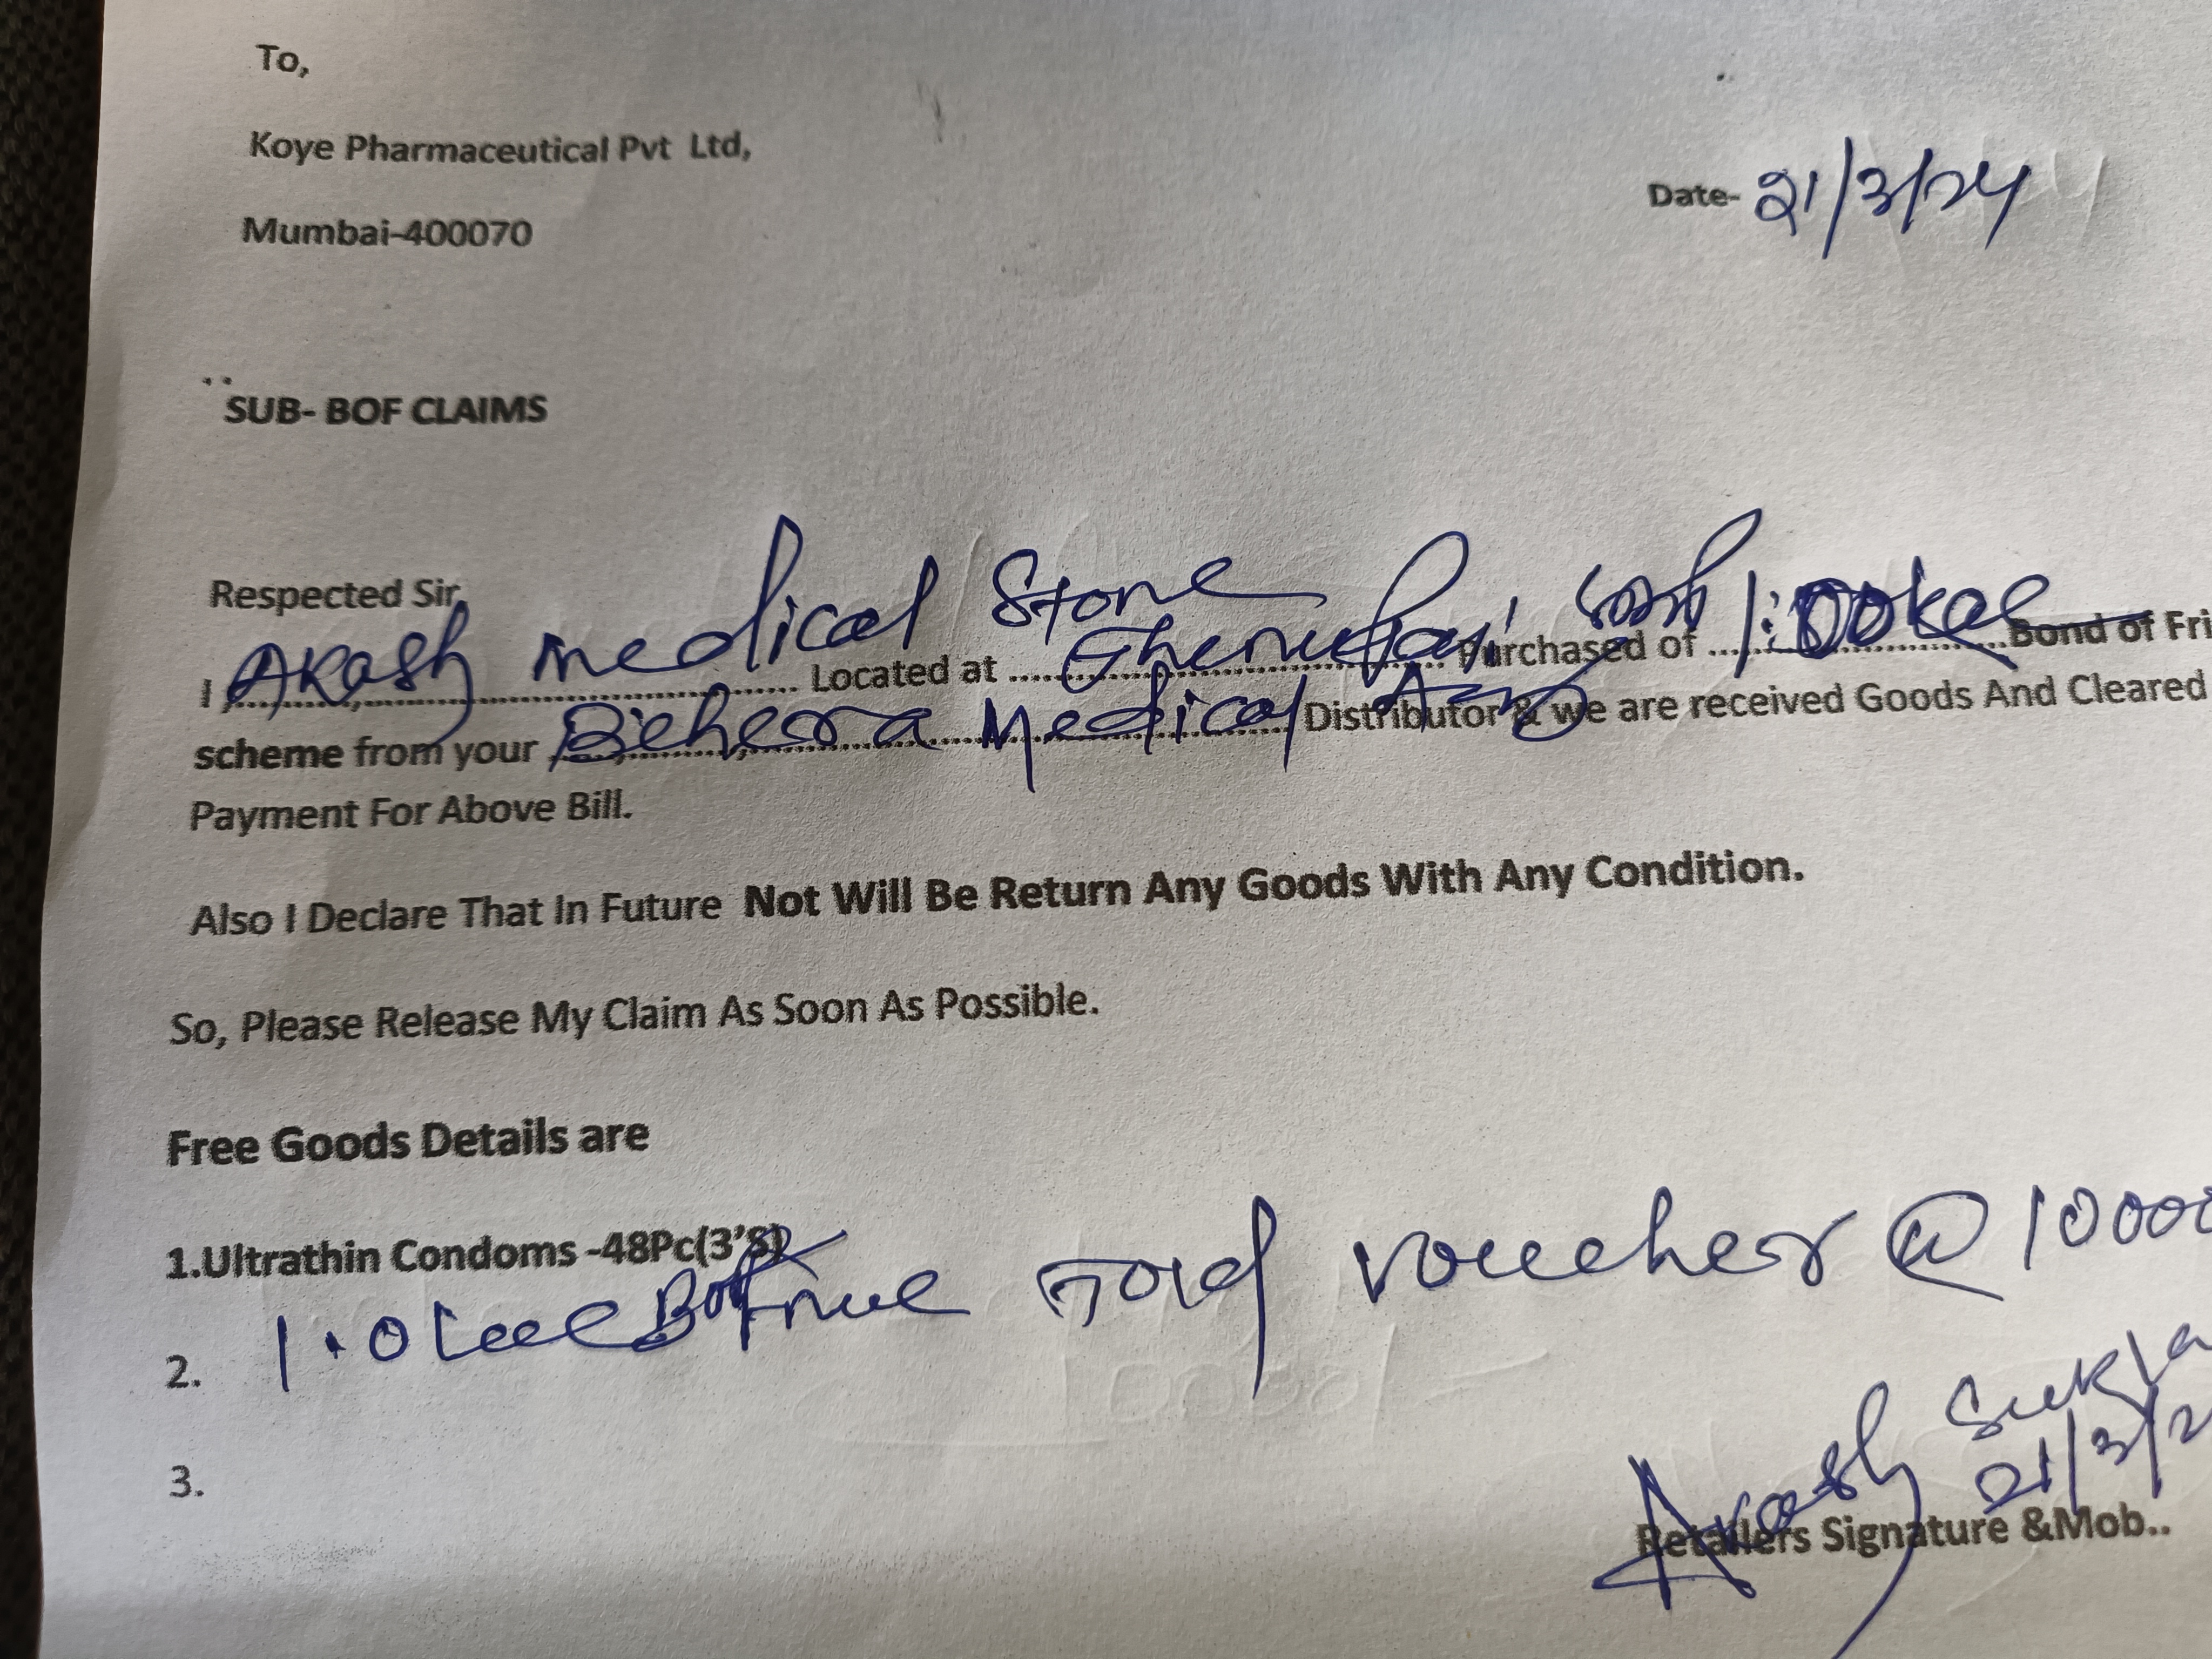 To,
Koye Pharmaceutical Pvt Ltd,
Date- 21/3/24
Mumbai-400070
SUB- BOF CLAIMS
Respected Sir,
I, Akash medical Store Located at Purchased of Bond of Fri
scheme from your Behera Medical Distributor & we are received Goods And Cleared
Payment For Above Bill.
Also I Declare That In Future Not Will Be Return Any Goods With Any Condition.
So, Please Release My Claim As Soon As Possible.
Free Goods Details are
1.Ultrathin Condoms -48Pc(3'S)
2. BOF voucher @ 10000
3.
Akash Sukla
21/3/2
Retailers Signature &Mob..